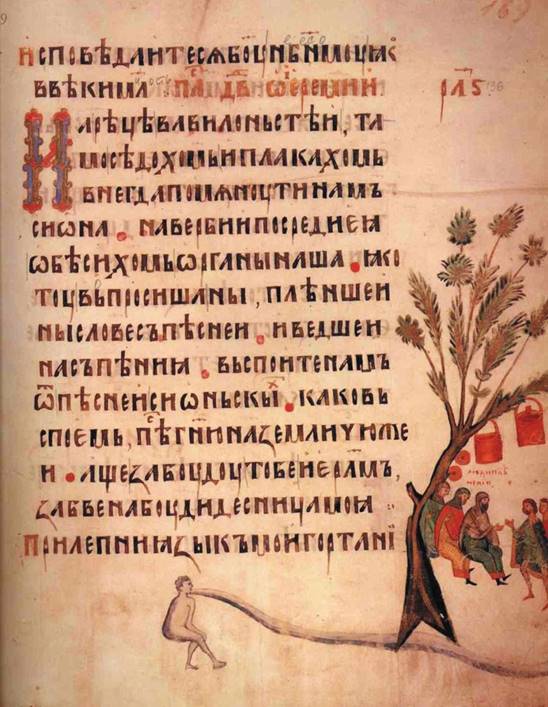 исповѣдаитесѧ б҃оу н҃бнмоу ꙗко
ввѣкимл҃ п҃л д҃в ѡеремии рл҃ѕ
На рѣцѣ вавилоньстѣи, та
мо сѣдохомъ и плакахомъ
внегда помѧноути намъ
сиѡна. на вербии посредие ꙗ
ѡбѣсихомъ ѡрганы наша. ꙗко
тоу въпросиша ны, плѣншеи
ны словесъ пѣснеи. и ведшеи
насъ пѣниꙗ. въспоите намъ
ѿ пѣснеи сиѡньскы҃. каковь
споемь, пѣ г҃ню на земли чюже
и. аще забоудоу тобе иерл҃мъ,
забвена боуди десница моꙗ
прилепни ꙗзыкъ мои гортани